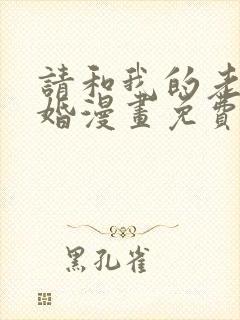 請和我的老
婚漫畫免費
黑孔雀